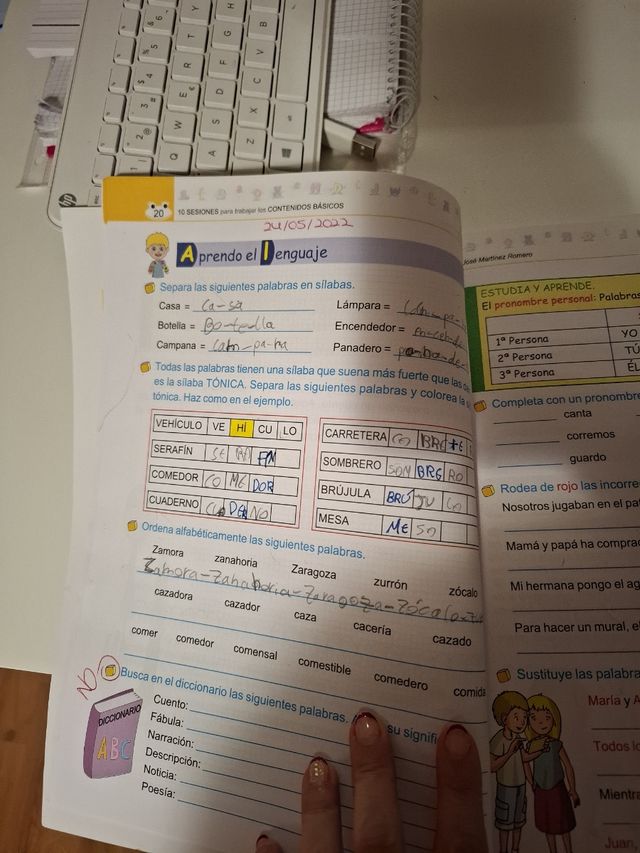 20
10 SESIONES para trabajar los CONTENIDOS BÁSICOS
24/05/2022
Aprendo el lenguaje
Separa las siguientes palabras en sílabas.
Casa = Ca-sa
Lámpara =
Botella = Bo-te-lla
Encendedor =
Campana = Cam-pa-na
Panadero =
Todas las palabras tienen una sílaba que suena más fuerte que las
es la sílaba TÓNICA. Separa las siguientes palabras y colorea la
tónica. Haz como en el ejemplo.
VEHÍCULO VE HÍ CU LO
SERAFÍN
COMEDOR CO ME DOR
CUADERNO
CARRETERA
SOMBRERO SOM BRE RO
BRÚJULA BRÚ JU
MESA ME SA
Ordena alfabéticamente las siguientes palabras.
Zamora zanahoria Zaragoza zurrón zócalo
Zamora-Zanahoria-Zaragoza-Zócalo
cazadora cazador caza cacería cazado
comer comedor comensal comestible comedero comida
NO
Busca en el diccionario las siguientes palabras. su signifi
DICCIONARIO
ABC
Cuento:
Fábula:
Narración:
Descripción:
Noticia:
Poesía:
José Martínez Romero
ESTUDIA Y APRENDE.
El pronombre personal: Palabras
1ª Persona YO
2ª Persona TÚ
3ª Persona ÉL
Completa con un pronombre
canta
corremos
guardo
Rodea de rojo las incorre
Nosotros jugaban en el pa
Mamá y papá ha compra
Mi hermana pongo el ag
Para hacer un mural, el
Sustituye las palabra
María y A
Todos lo
Mientra
Juan,
hp